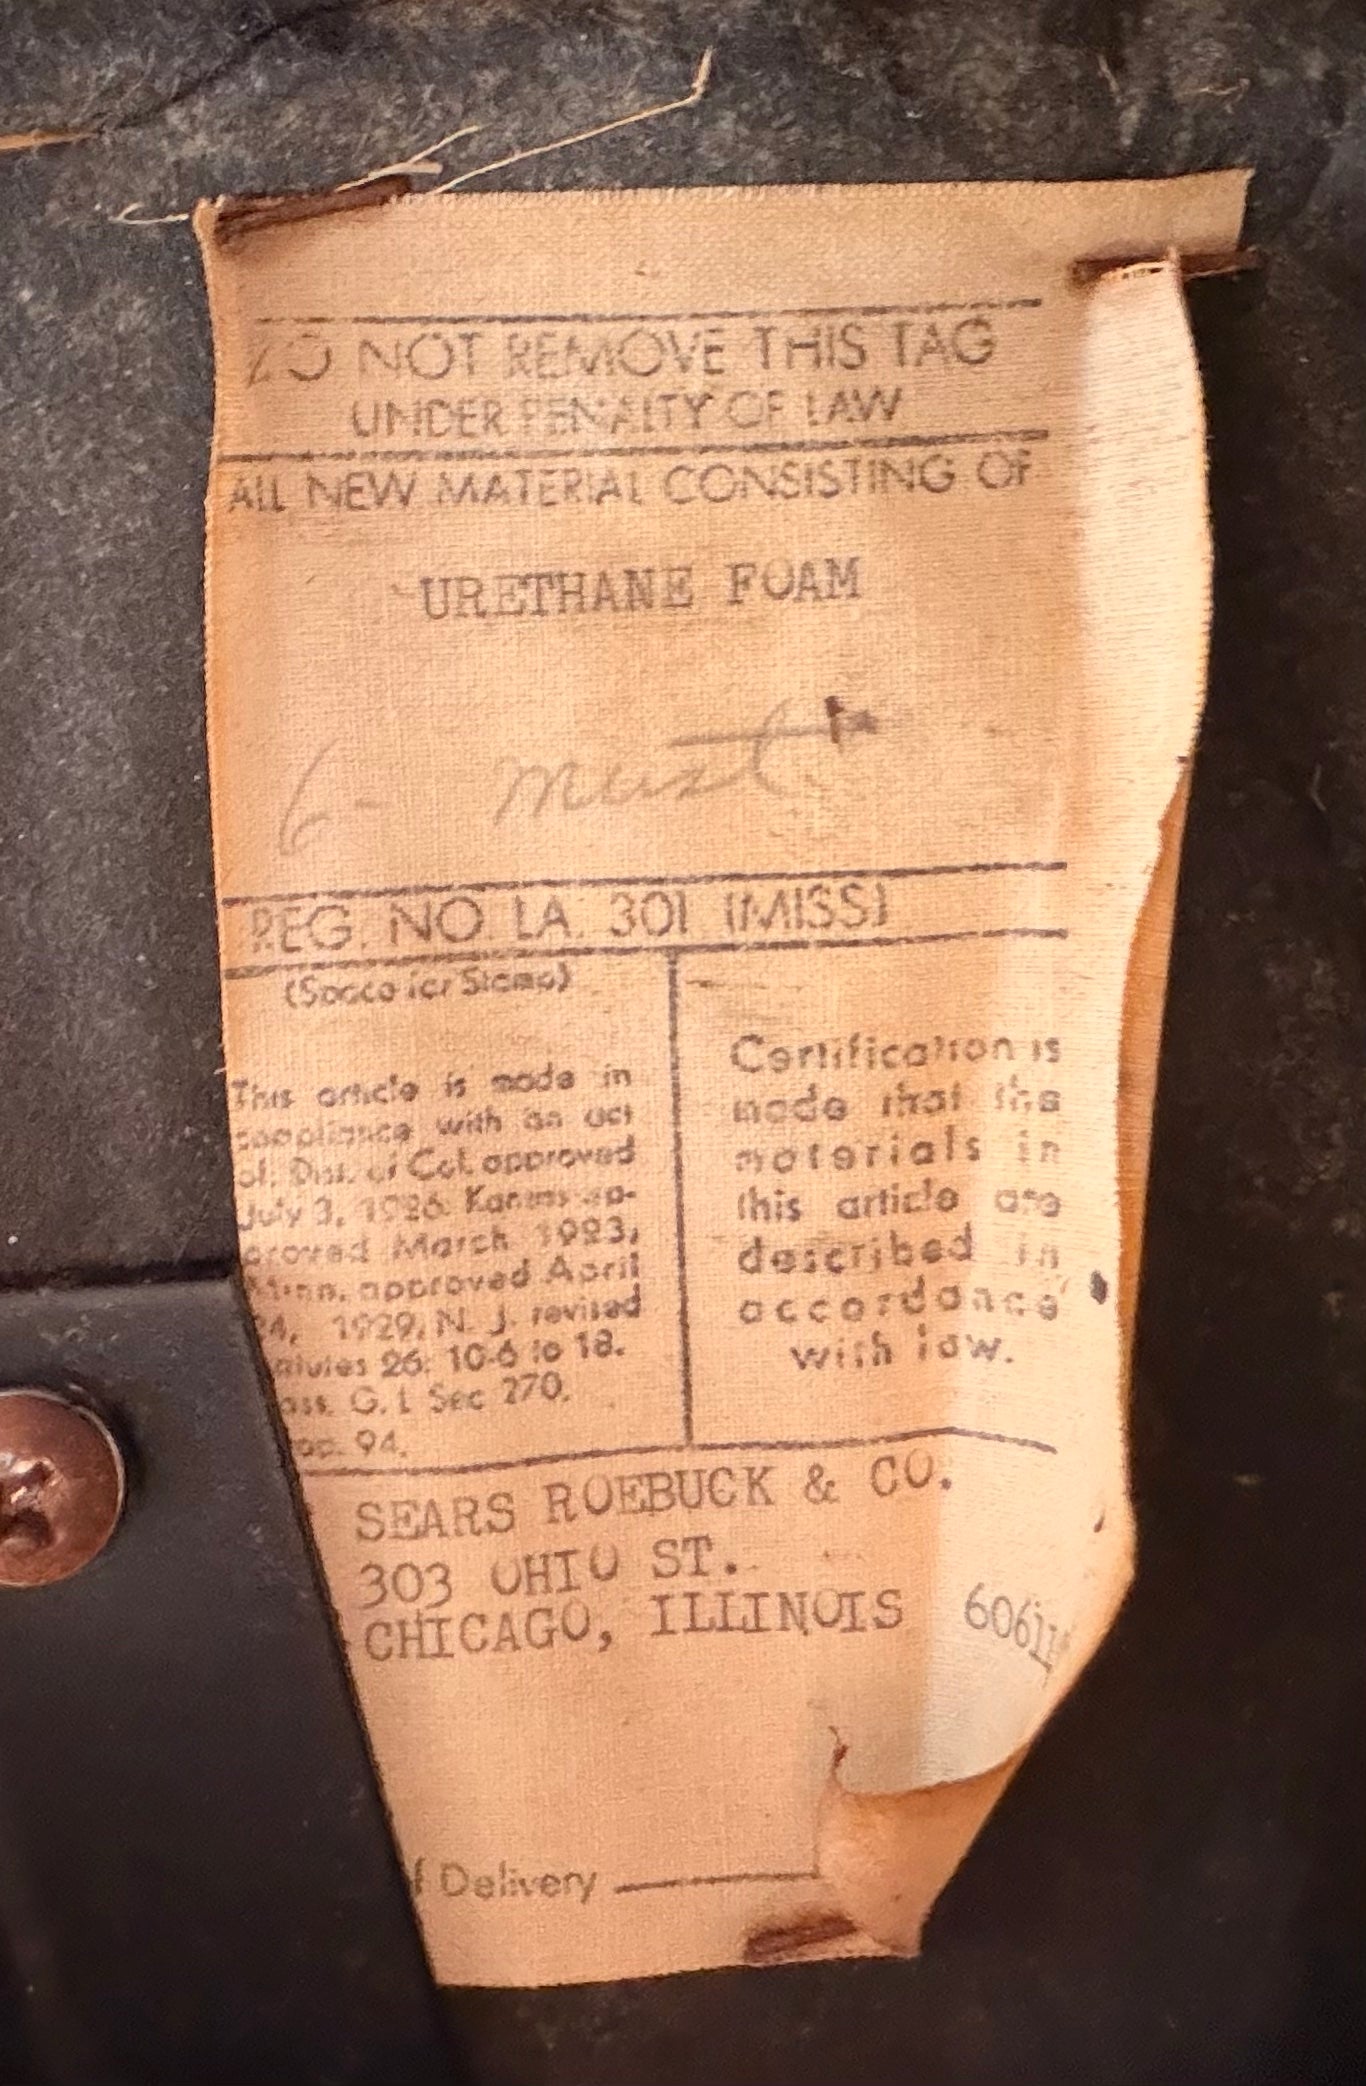 DO NOT REMOVE THIS TAG
UNDER PENALTY OF LAW
ALL NEW MATERIAL CONSISTING OF
URETHANE FOAM
6- must
REG. NO. LA. 301 (MISS)
(Space for Stamp)
This article is made in
compliance with an act
of. Dist. of Col. approved
July 3, 1926. Kansas ap-
proved March 1923,
Minn. approved April
24, 1929. N. J. revised
statutes 26: 10-6 to 18.
ass. G. L Sec 270.
94.
Certification is
made that the
materials in
this article are
described in
accordance
with law.
SEARS ROEBUCK & CO.
303 OHIO ST.
CHICAGO, ILLINOIS 60611
f Delivery